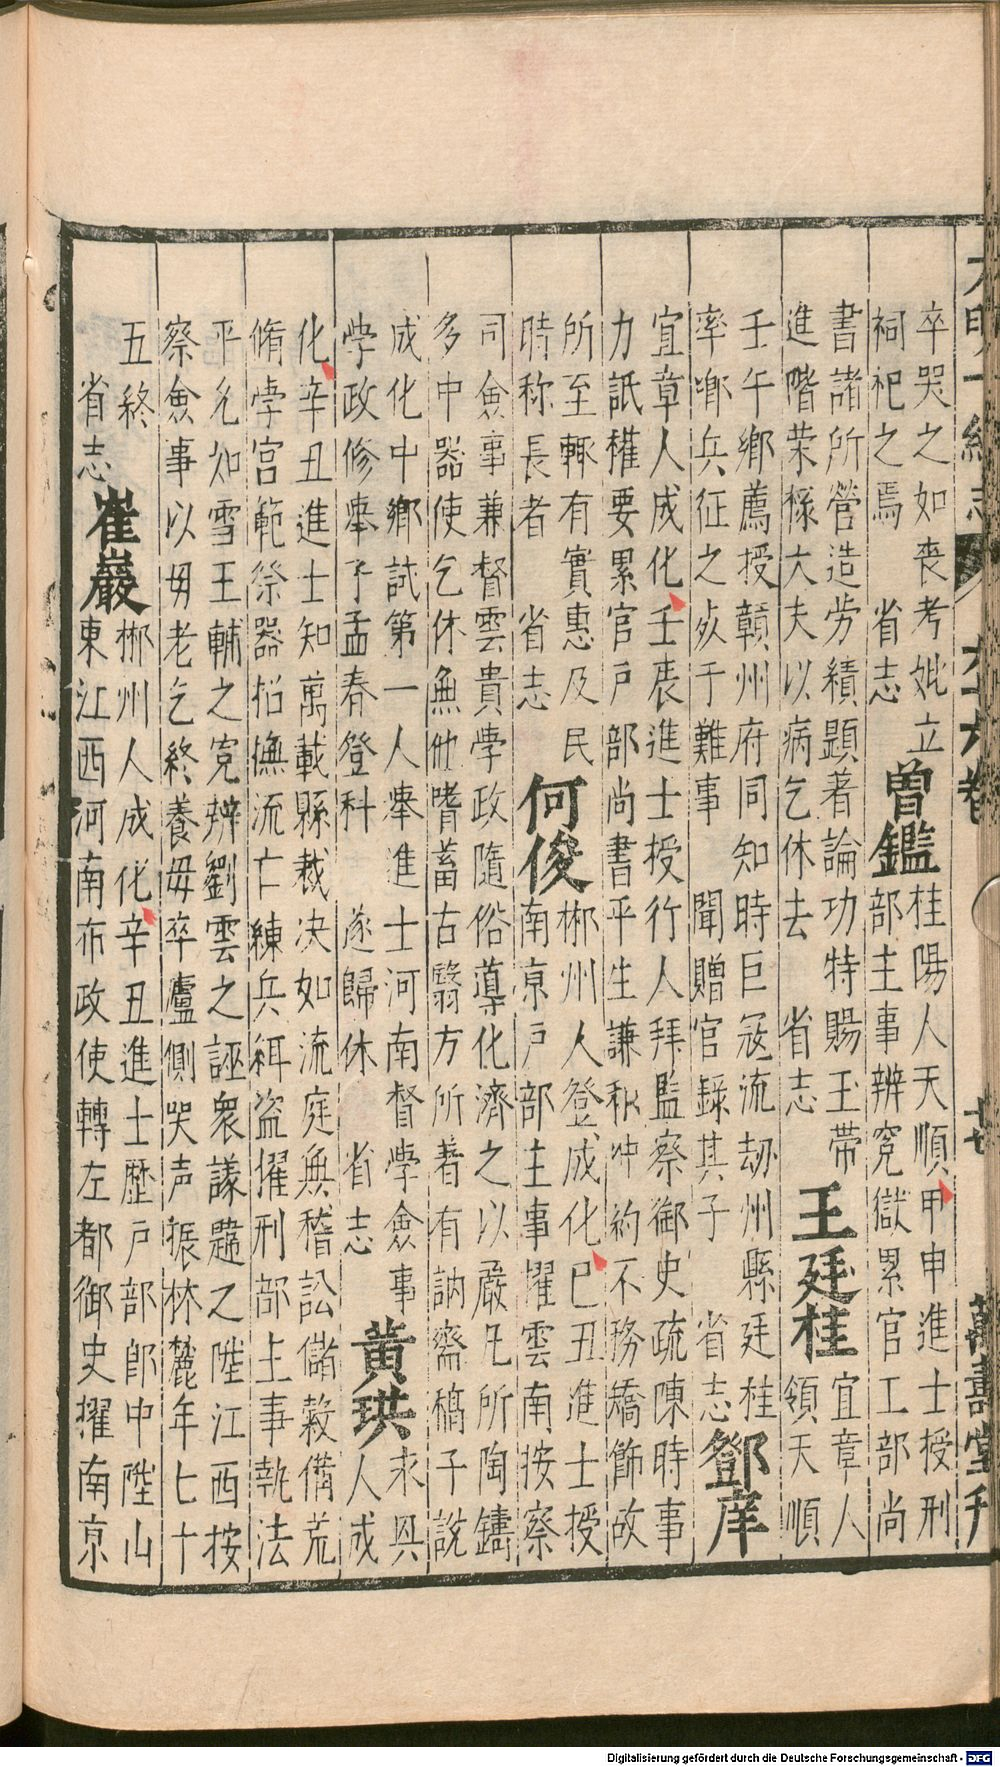 大明一統志 六十六卷 廿 萬壽堂刊
卒哭之如喪考妣立
祠祀之焉 省志
曾鑑
桂陽人天順甲申進士授刑
部主事辨寃獄累官工部尚
書諸所營造劳績顯著論功特賜玉帶
進階荣祿大夫以病乞休去 省志
王廷桂
宜章人
領天順
壬午鄉薦授贛州府同知時巨冦流劫州縣廷桂
率鄉兵征之歿于難事 聞贈官錄其子 省志
鄧庠
宜章人成化壬辰進士授行人拜監察御史疏陳時事
力詆權要累官户部尚書平生謙和冲約不務矯飾故
所至輒有實惠及民
時称長者 省志
何俊
郴州人登成化己丑進士授
南京户部主事擢雲南按察
司僉事兼督雲貴学政隨俗導化濟之以嚴凡所陶鑄
多中器使乞休無他嗜蓄古醫方所著有訥齋稿子說
成化中鄉試第一人舉進士河南督學僉事
学政修舉子孟春登科 遂歸休 省志
黄珙
永興
人成
化辛丑進士知萬載縣裁决如流庭無稽訟儲穀備荒
脩學宫範祭器招撫流亡練兵弭盗擢刑部主事執法
平允如雪王輔之寃辨劉雲之誣衆議韙之陞江西按
察僉事以毋老乞終養毋卒廬側哭声振林麓年七十
五終
省志
崔巖
郴州人成化辛丑進士歷户部郎中陞山
東江西河南布政使轉左都御史擢南京
Digitalisierung gefördert durch die Deutsche Forschungsgemeinschaft - DFG